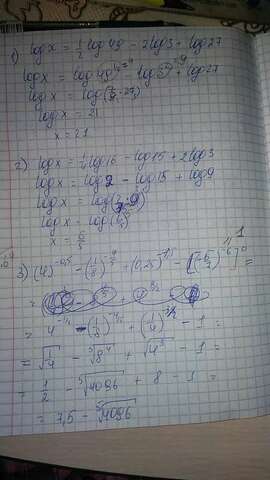 1) log x = 1/2 log 49 − 2 log 3 + log 27
log x = log 49^(1/2)=7 − log 3^2=9 + log 27
log x = log(7/9 · 27)
log x = 21
x = 21
2) log x = 1/4 log 16 − log 15 + 2 log 3
log x = log 2 − log 15 + log 9
log x = log(2/15 · 9)
x = 6/5
= 4^(-1/2) − (1/8)^(-4/5) + (1/4)^(-3/2) − 1 =
= √(1/4) − ⁵√(8⁴) + √(4³) − 1 =
= 1/2 − ⁵√4096 + 8 − 1 =
= 7,5 − ⁵√4096